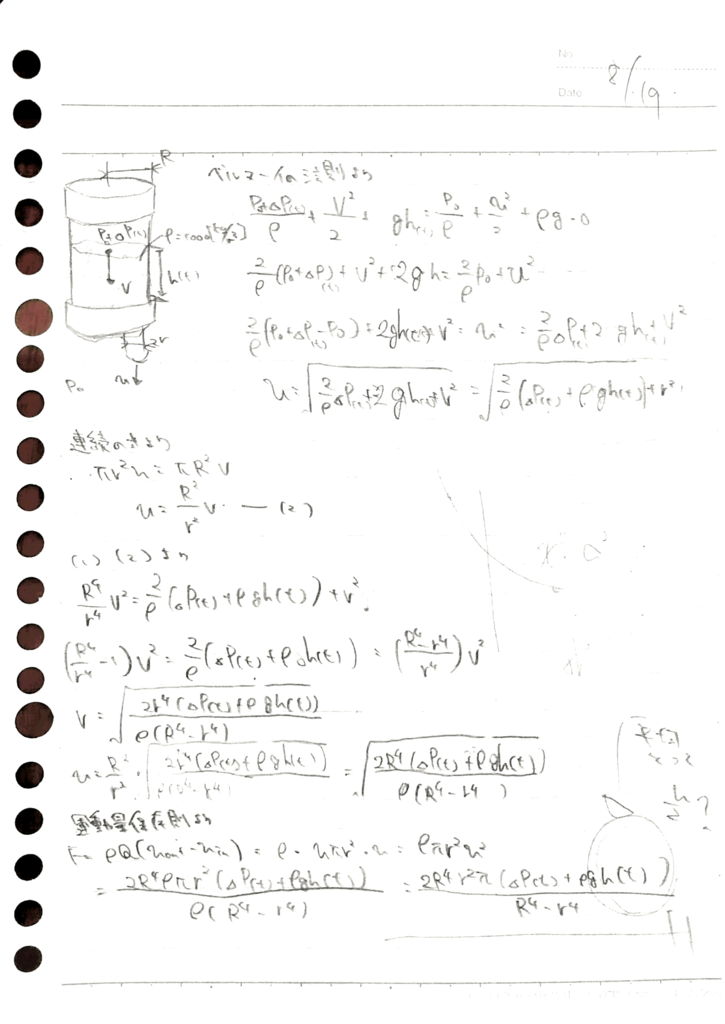 No.
Date 8/19
R
P₀+ΔP(t) ρ=1000[kg/m³]
V
h(t)
2r
u
P₀
ベルヌーイの法則より
(P₀+ΔP(t))/ρ + V²/2 + gh(t) = P₀/ρ + u²/2 + ρg·0
2/ρ (P₀+ΔP(t)) + V² + 2gh = 2/ρ P₀ + u²
2/ρ (P₀+ΔP-P₀) + 2gh(t) + V² = u² = 2/ρ ΔP(t) + 2gh(t) + V²
u = √(2/ρ ΔP(t) + 2gh(t) + V²) = √(2/ρ (ΔP(t) + ρgh(t)) + V²)
連続の式より
πr²u = πR²V
u = R²/r² V — (2)
(1) (2) より
R⁴/r⁴ V² = 2/ρ (ΔP(t) + ρgh(t)) + V²
(R⁴/r⁴ - 1)V² = 2/ρ (ΔP(t) + ρgh(t)) = ((R⁴-r⁴)/r⁴) V²
V = √(2r⁴(ΔP(t) + ρgh(t)) / ρ(R⁴-r⁴))
u = R²/r² · √(2r⁴(ΔP(t) + ρgh(t)) / ρ(R⁴-r⁴)) = √(2R⁴(ΔP(t) + ρgh(t)) / ρ(R⁴-r⁴))
運動量保存則より
F = ρQ(u_out - u_in) = ρ·uπr²·u = ρπr²u²
= 2R⁴ρπr²(ΔP(t) + ρgh(t)) / ρ(R⁴-r⁴) = 2R⁴r²π(ΔP(t) + ρgh(t)) / R⁴-r⁴
h/2?